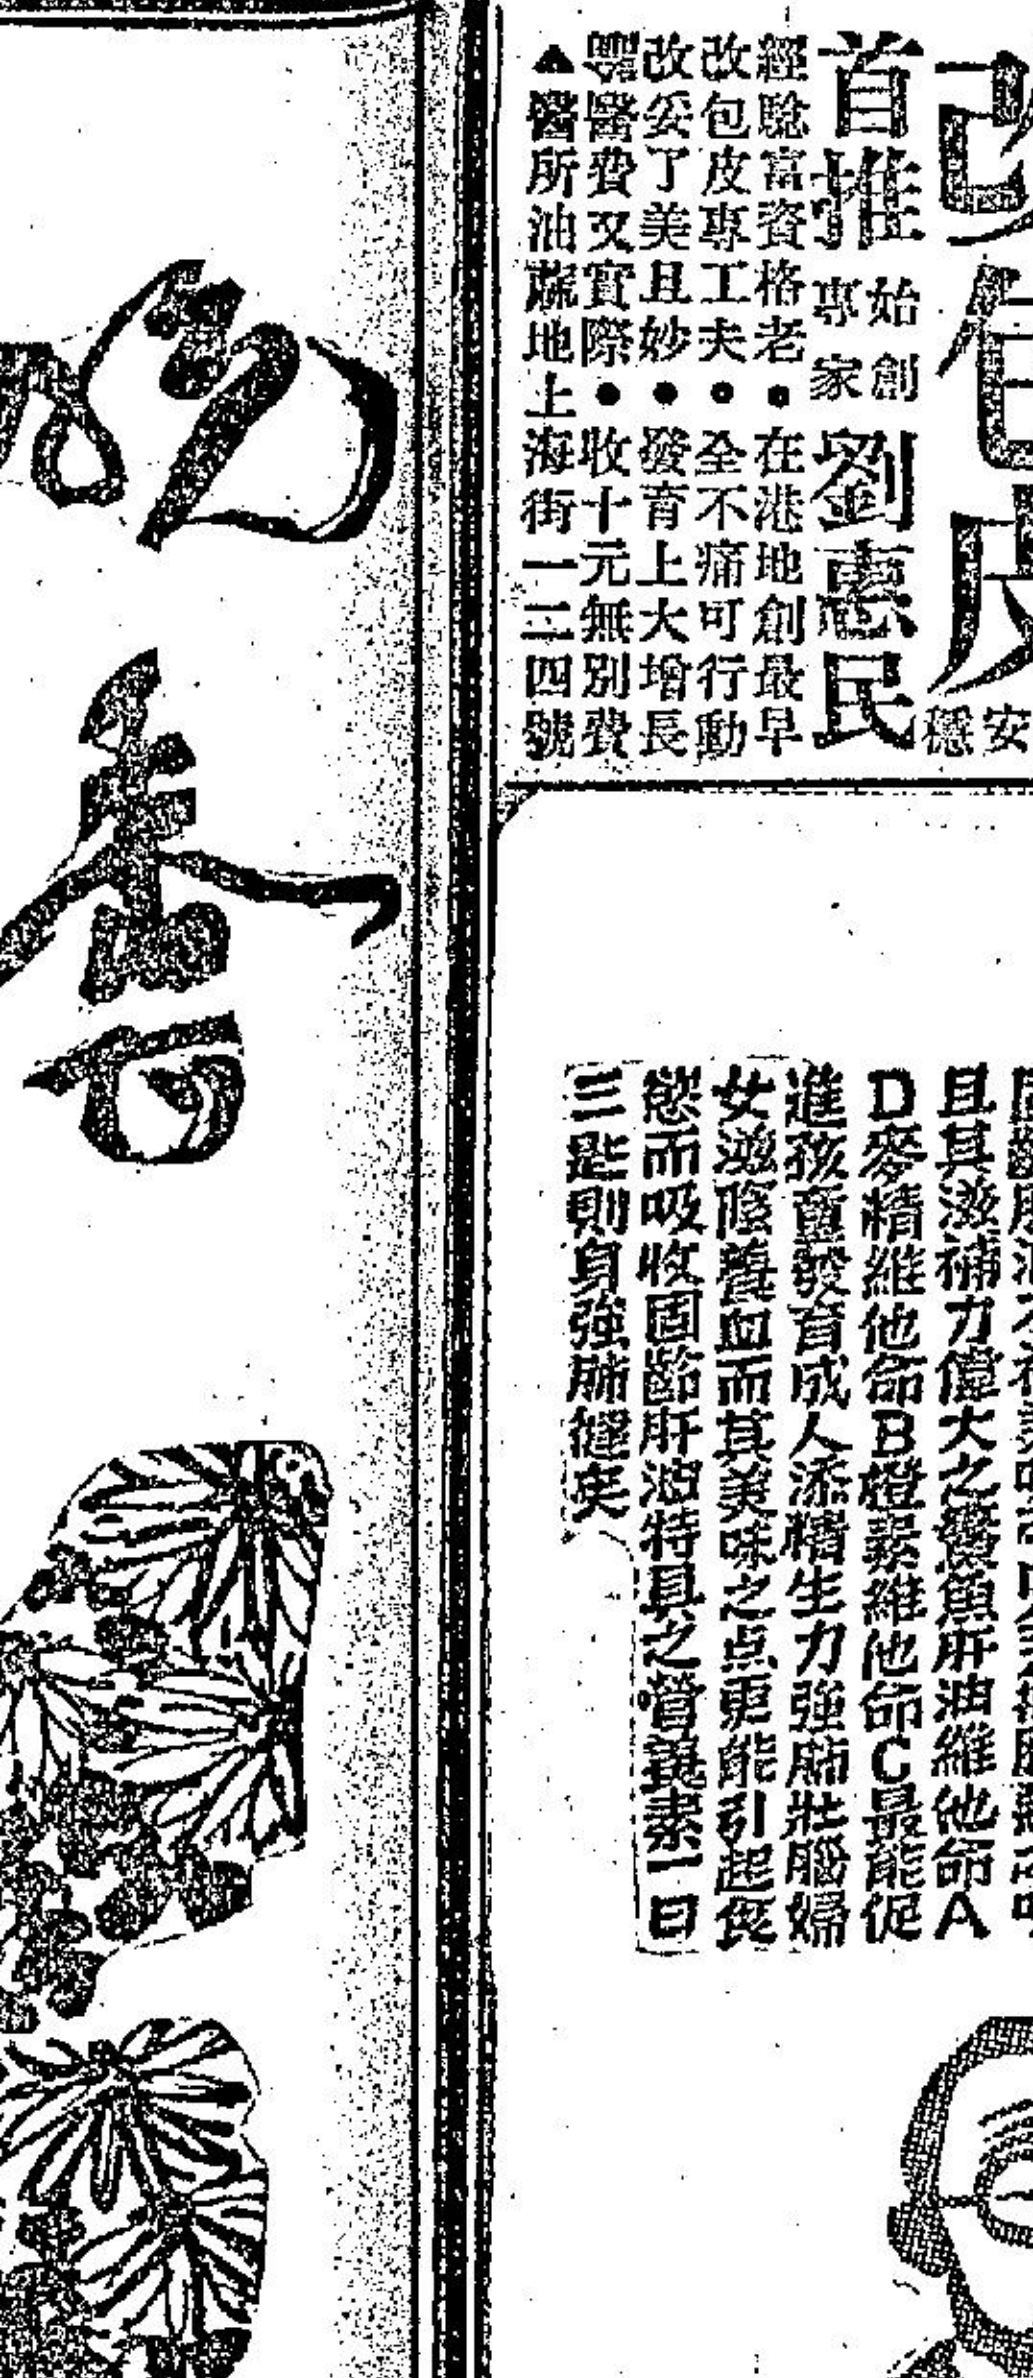 改包皮
安穩
首推
始創
專家
劉惠民
經驗富資格老●在港地創最早
改包皮專工夫●全不痛可行動
改妥了美且妙●發育上大增長
醫費又實際●收十元無別費
▲醫所油蔴地上海街一二四號
且其滋補力偉大之鰵魚肝油維他命A
D麥精維他命B橙素維他命C最能促
進孩童發育成人添精生力強肺壯腦婦
女滋陰養血而其美味之点更能引起食
慾而吸收固齡肝油特具之營養素一日
三匙則身強肺健矣
香